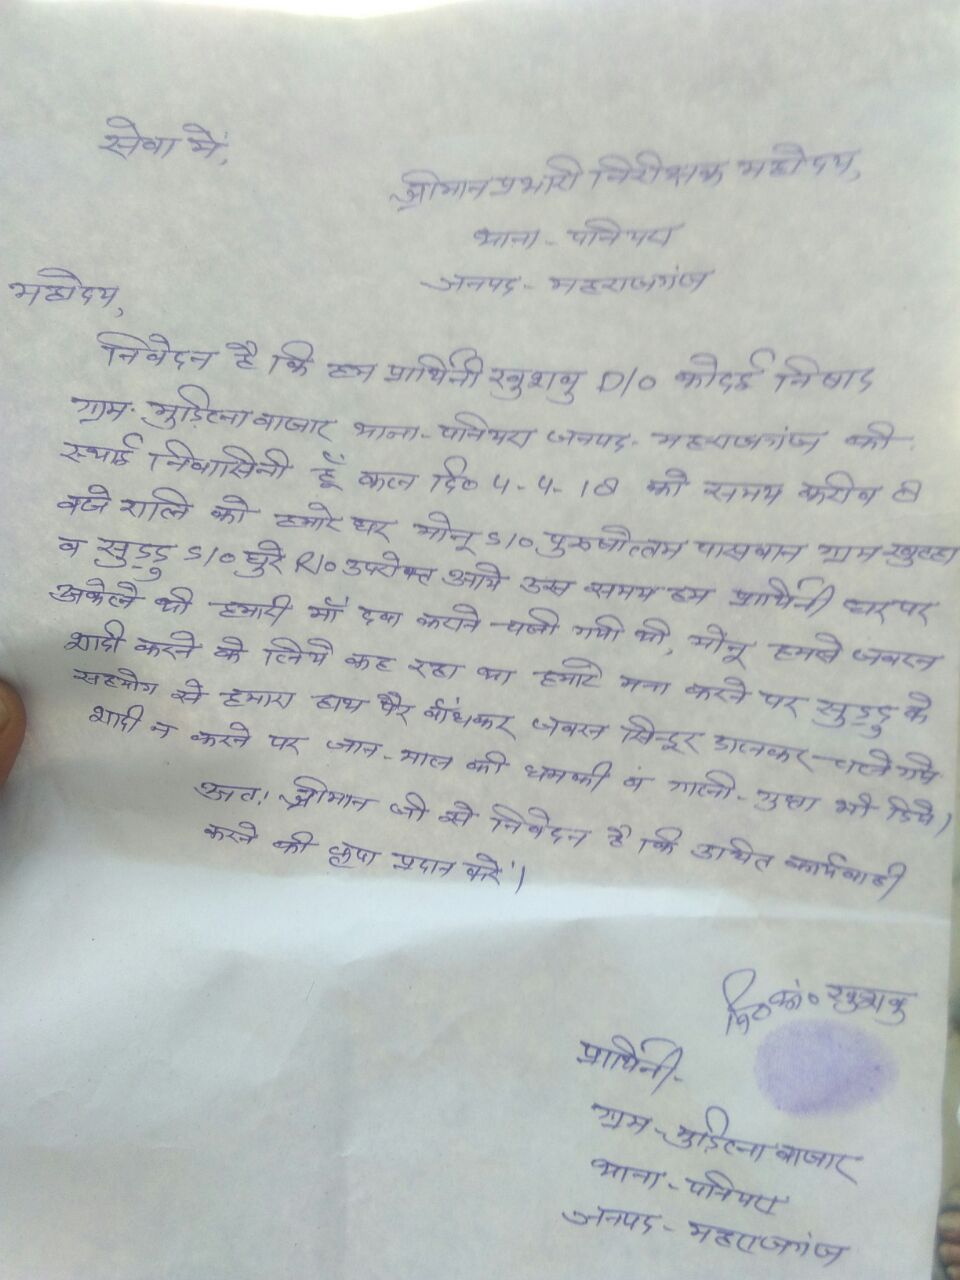 सेवा में,
श्रीमान प्रभारी निरीक्षक महोदय,
थाना - पनियरा
जनपद - महराजगंज
महोदय,
निवेदन है कि हम प्रार्थिनी खुशबु D/O कोदई निषाद
ग्राम - मुड़िला बाजार थाना - पनियरा जनपद - महराजगंज की
स्थाई निवासिनी हूँ कल दि० 4-4-18 को समय करीब 8
बजे रात्रि को हमारे घर मोनू S/O पुरुषोत्तम पासवान ग्राम
व सुड्डु S/O घुरे R/O उपरोक्त आये उस समय हम प्रार्थिनी घर पर
अकेले थी हमारी माँ दवा कराने चली गयी थी, मोनू हमसे जबरन
शादी करने के लिये कह रहा था हमारे मना करने पर सुड्डु के
सहयोग से हमारा हाथ पैर बांधकर जबरन सिन्दूर डालकर चले गये
शादी न करने पर जान-माल की धमकी व गाली-गुप्ता भी दिये।
अतः श्रीमान जी से निवेदन है कि उचित कार्यवाही
करने की कृपा प्रदान करें।
नि० अं० खुशबु
प्रार्थिनी -
ग्राम - मुड़िला बाजार
थाना - पनियरा
जनपद - महराजगंज